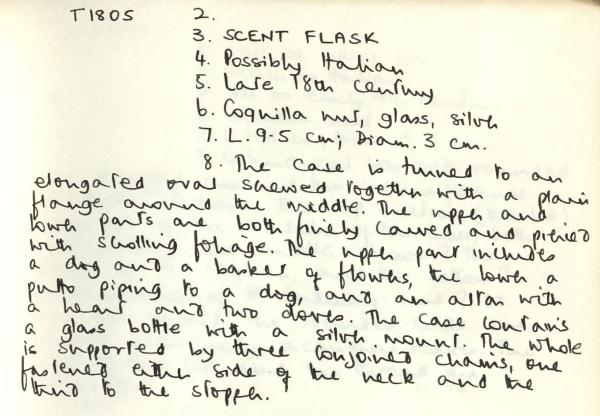 T1805 2.
3. SCENT FLASK
4. Possibly Italian
5. Late 18th century
6. Coquilla nut, glass, silver
7. L. 9.5 cm; Diam. 3 cm.
8. The case is turned to an
elongated oval shewed together with a plain
flange around the middle. The upper and
lower parts are both finely carved and pierced
with scrolling foliage. The upper part includes
a dog and a basket of flowers, the lower a
putto piping to a dog, and an altar with
a heart and two doves. The case contains
a glass bottle with a silver mount. The whole
is supported by three conjoined chains, one
fastened either side of the neck and the
third to the stopper.